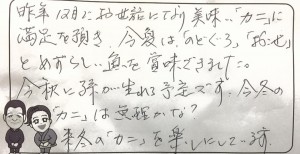 昨年12月にお世話になり美味しい「カニ」に
満足を頂き、今夏は、「のどぐろ」「おこぜ」
とめずらしい魚を賞味できました。
今秋に孫が生れる予定です。今冬の
「カニ」は無理かな？
来冬の「カニ」を楽しみにしています。